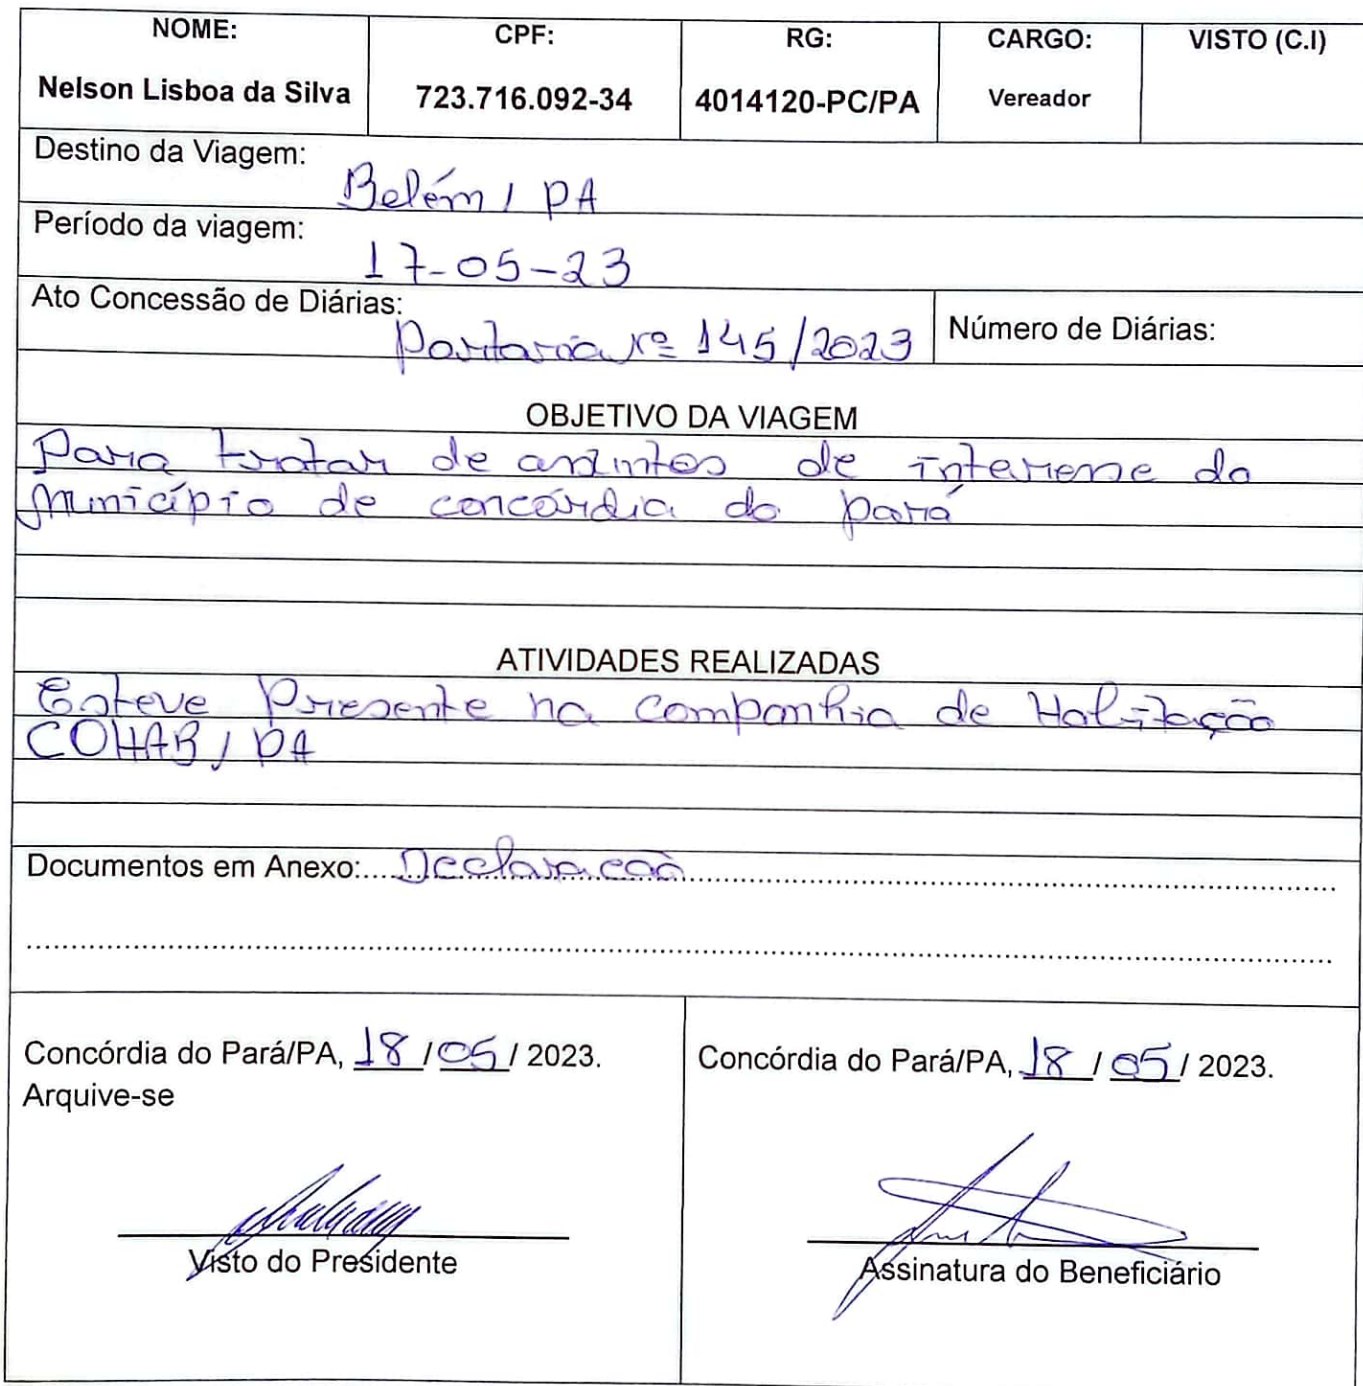 NOME: CPF: RG: CARGO: VISTO (C.I)
Nelson Lisboa da Silva 723.716.092-34 4014120-PC/PA Vereador
Destino da Viagem:
Belém / PA
Período da viagem:
17-05-23
Ato Concessão de Diárias:
Portaria nº 145/2023 Número de Diárias:
OBJETIVO DA VIAGEM
Para tratar de assuntos de interesse do
Município de concórdia do pará
ATIVIDADES REALIZADAS
Esteve Presente na Companhia de Habitação
COHAB / PA
Documentos em Anexo:....Declaracaõ
Concórdia do Pará/PA, 18 / 05 / 2023.
Arquive-se
Visto do Presidente
Concórdia do Pará/PA, 18 / 05 / 2023.
Assinatura do Beneficiário